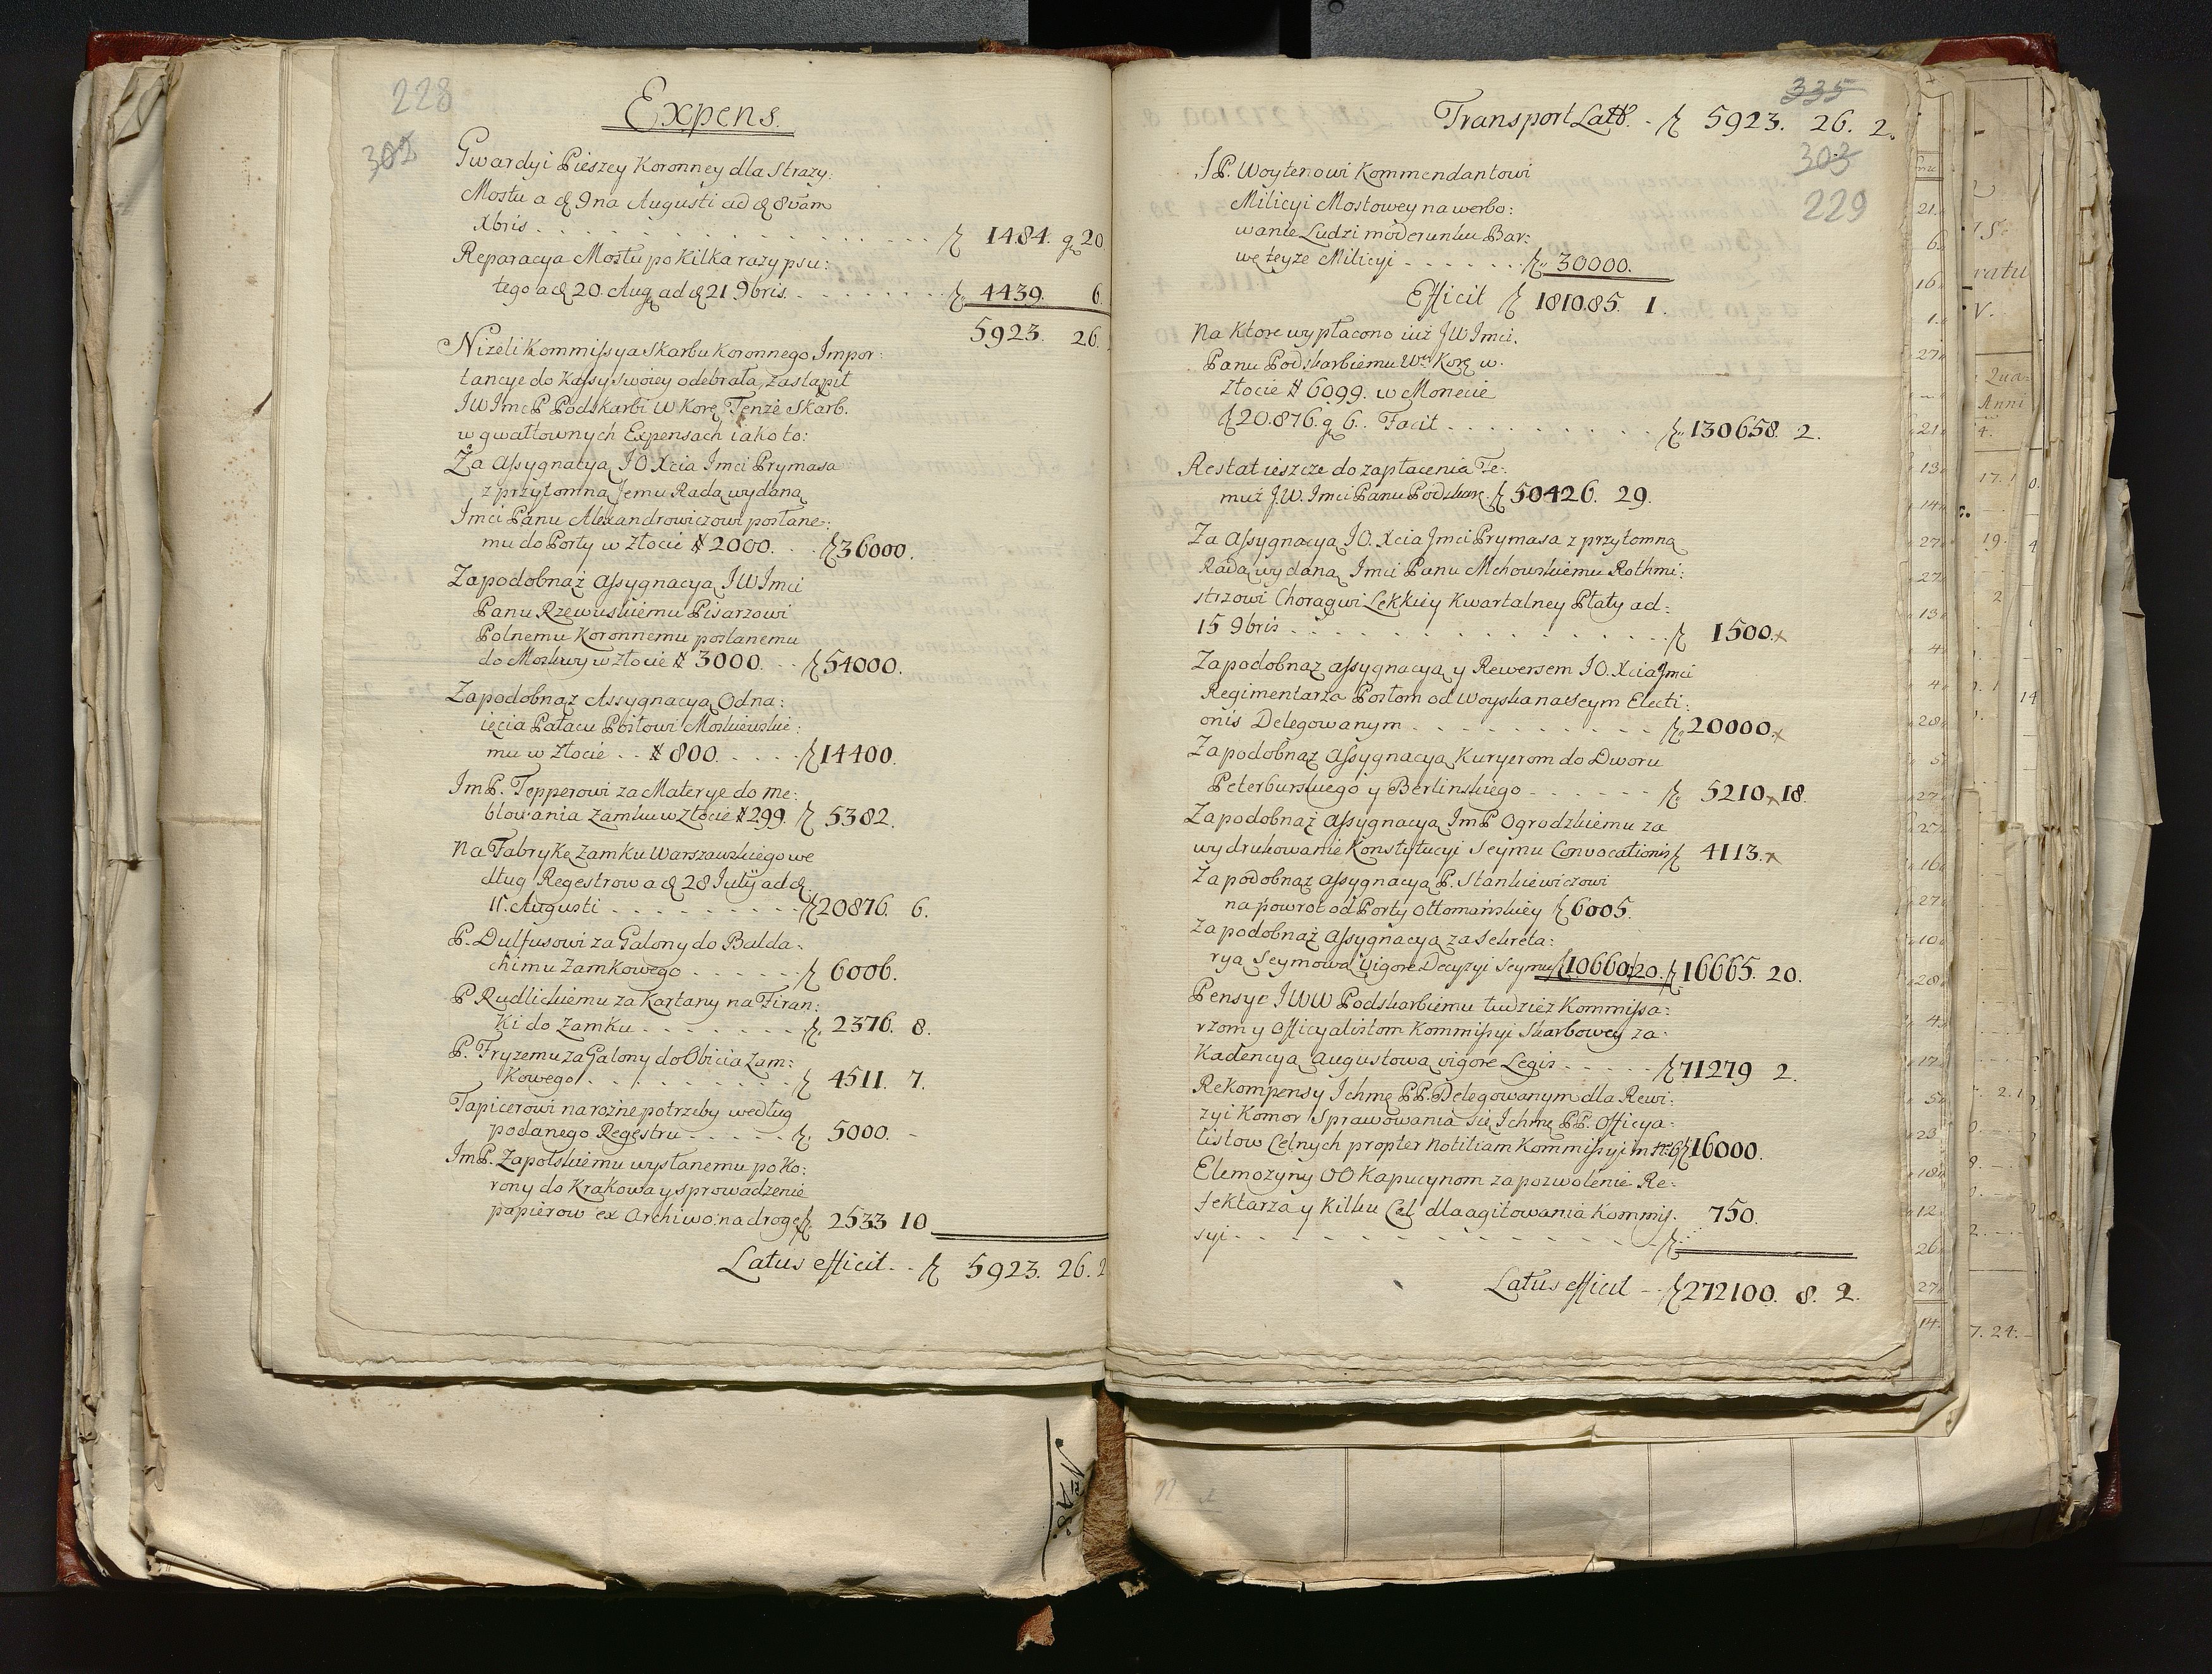 228
302
Expens.
Gwardyi Pieszey Koronney dla Straży:
Mostu a d. 9na Augusti ad d. 8vam
Xbris . . . . 1484. g 20
Reparacya Mostu po kilka razy psu:
tego a d. 20. Aug. ad d. 21 9bris. . . . 4439. 6.
5923. 26.
Niżeli Kommissya Skarbu Koronnego Impor:
tancye do Kassy swoiey odebrała, zastąpił
JW Imc P Podskarbi W Kor. Tenże Skarb.
w gwałtownych Expensach iako to:
Za Assygnacyą JO Xcia Imci Prymasa
z przytomną Jemu Radą wydaną
Imci Panu Alexandrowiczowi posłane:
mu do Porty w Złocie # 2000. . . 36000.
Za podobnąż Assygnacyą JW Imci
Panu Rzewuskiemu Pisarzowi
Polnemu Koronnemu posłanemu
do Moskwy w Złocie # 3000. . . 54000.
Za podobnąż Assygnacyą Odna:
ięcia Pałacu Posłowi Moskiewskie:
mu w Złocie . . # 800. . . . . 14400.
ImP. Tepperowi za Materye do Me:
blowania Zamku w Złocie # 299. 5382.
Na Fabrykę Zamku Warszawskiego we
dług Regestrow a d. 28 Julij ad d.
15. Augusti . . . . 20876. 6.
P. Dulfusowi za Galony do Balda:
chimu Zamkowego . . . . 6006.
P Rudlickiemu za Kartany na Firan:
ki do Zamku . . . . 2376. 8.
P. Fryzemu za Galony do Obicia Zam:
kowego . . . . 4511. 7.
Tapicerowi na rożne potrzeby według
podanego Regestru . . . . 5000. -
ImP. Zapolskiemu wysłanemu po Ko:
rony do Krakowa y sprowadzenie
papierow ex Archivo: na drogę 2533 10
Latus efficit. . . 5923. 26. 2
335
303
229
Transport Latis. - 5923. 26. 2.
JP. Woytenowi Kommendantowi
Milicyi Mostowey na werbo:
wanie Ludzi moderunku Bar:
wę teyże Milicyi . . . . 30000.
Efficit 181085. 1.
Na ktore wypłacono iuż JW Imci.
Panu Podskarbiemu W. Kor. w.
Złocie # 6099. w Monecie
20.876. g 6. Facit . . . . 130658. 2.
Restat ieszcze do zapłacenia Te:
muż J.W. Imci Panu Podskar. 50426. 29.
Za Assygnacyą JO. Xcia Jmci Prymasa z przytomną
Radą wydaną Imci Panu Mchowskiemu Rothmi:
strzowi Chorągwi Lekkiey Kwartalney Płaty ad:
15 9bris . . . . 1500.
Za podobnąż assygnacyą y Rewersem JO. Xcia Jmci
Regimentarza Posłom od Woyska na Seym Electi:
onis Delegowanym . . . . 20000.
Za podobnąż Assygnacyą Kuryerom do Dworu
Peterburskiego y Berlinskiego . . . . 5210. 18.
Za podobnąż Assygnacyą ImP Ogrodzkiemu za
wydrukowanie Konstytucyi Seymu Convocationis 4113.
Za podobnąż Assygnacyą P. Stankiewiczowi
na powrot od Porty Ottomańskiey 6005.
Za podobnąż Assygnacyą za Sekreta:
rya Seymowa vigore Decyzyi Seymu 10660 20. 16665. 20.
Pensye JWW Podskarbiemu tudzież Kommissa:
rzom y Officyalistom Kommissyi Skarbowey za:
Kadencyą Augustową vigore Legis . . . . 71279 2.
Rekompensy Ichmę PP. Delegowanym dla Rewi:
zyi Komor Sprawowania się Ichmę PP. Officya:
listow Celnych propter notitiam Kommissyi 16000.
Elemożyny OO Kapucynom za pozwolenie Re:
fektarza y kilku Cel dla agitowania Kommis: 750.
syi . . . .
Latus efficit - 272100. 8. 2.